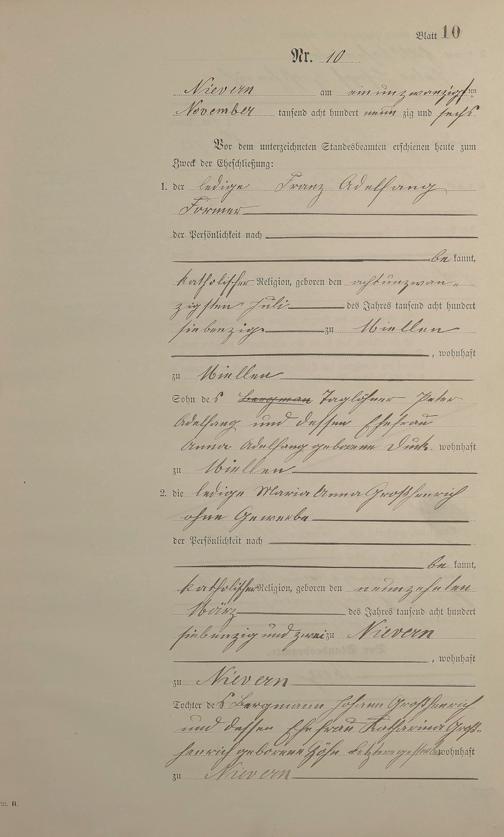 Blatt 10
Nr. 10
Nievern am einunzwanzigsten
November tausend acht hundert neun zig und sechs
Vor dem unterzeichneten Standesbeamten erschienen heute zum
Zweck der Eheschließung:
1. der ledige Franz Adelfang
Former
der Persönlichkeit nach
be kannt,
katholischer Religion, geboren den achtunzwan-
zigsten Juli des Jahres tausend acht hundert
siebenzig zu Miellen
, wohnhaft
zu Miellen
Sohn des Bergman Taglöhner Peter
Adelfang und dessen Ehefrau
Anna Adelfang geborene wohnhaft
zu Miellen
2. die ledige Maria Anna Großhenrich
ohne Gewerbe
der Persönlichkeit nach
be kannt,
katholischer Religion, geboren den neunzehnten
März des Jahres tausend acht hundert
siebenzig und zwei zu Nievern
, wohnhaft
zu Nievern
Tochter des Bergmann Johann Großhenrich
und dessen Ehefrau Katharina Groß-
henrich geborene Höhn wohnhaft
zu Nievern